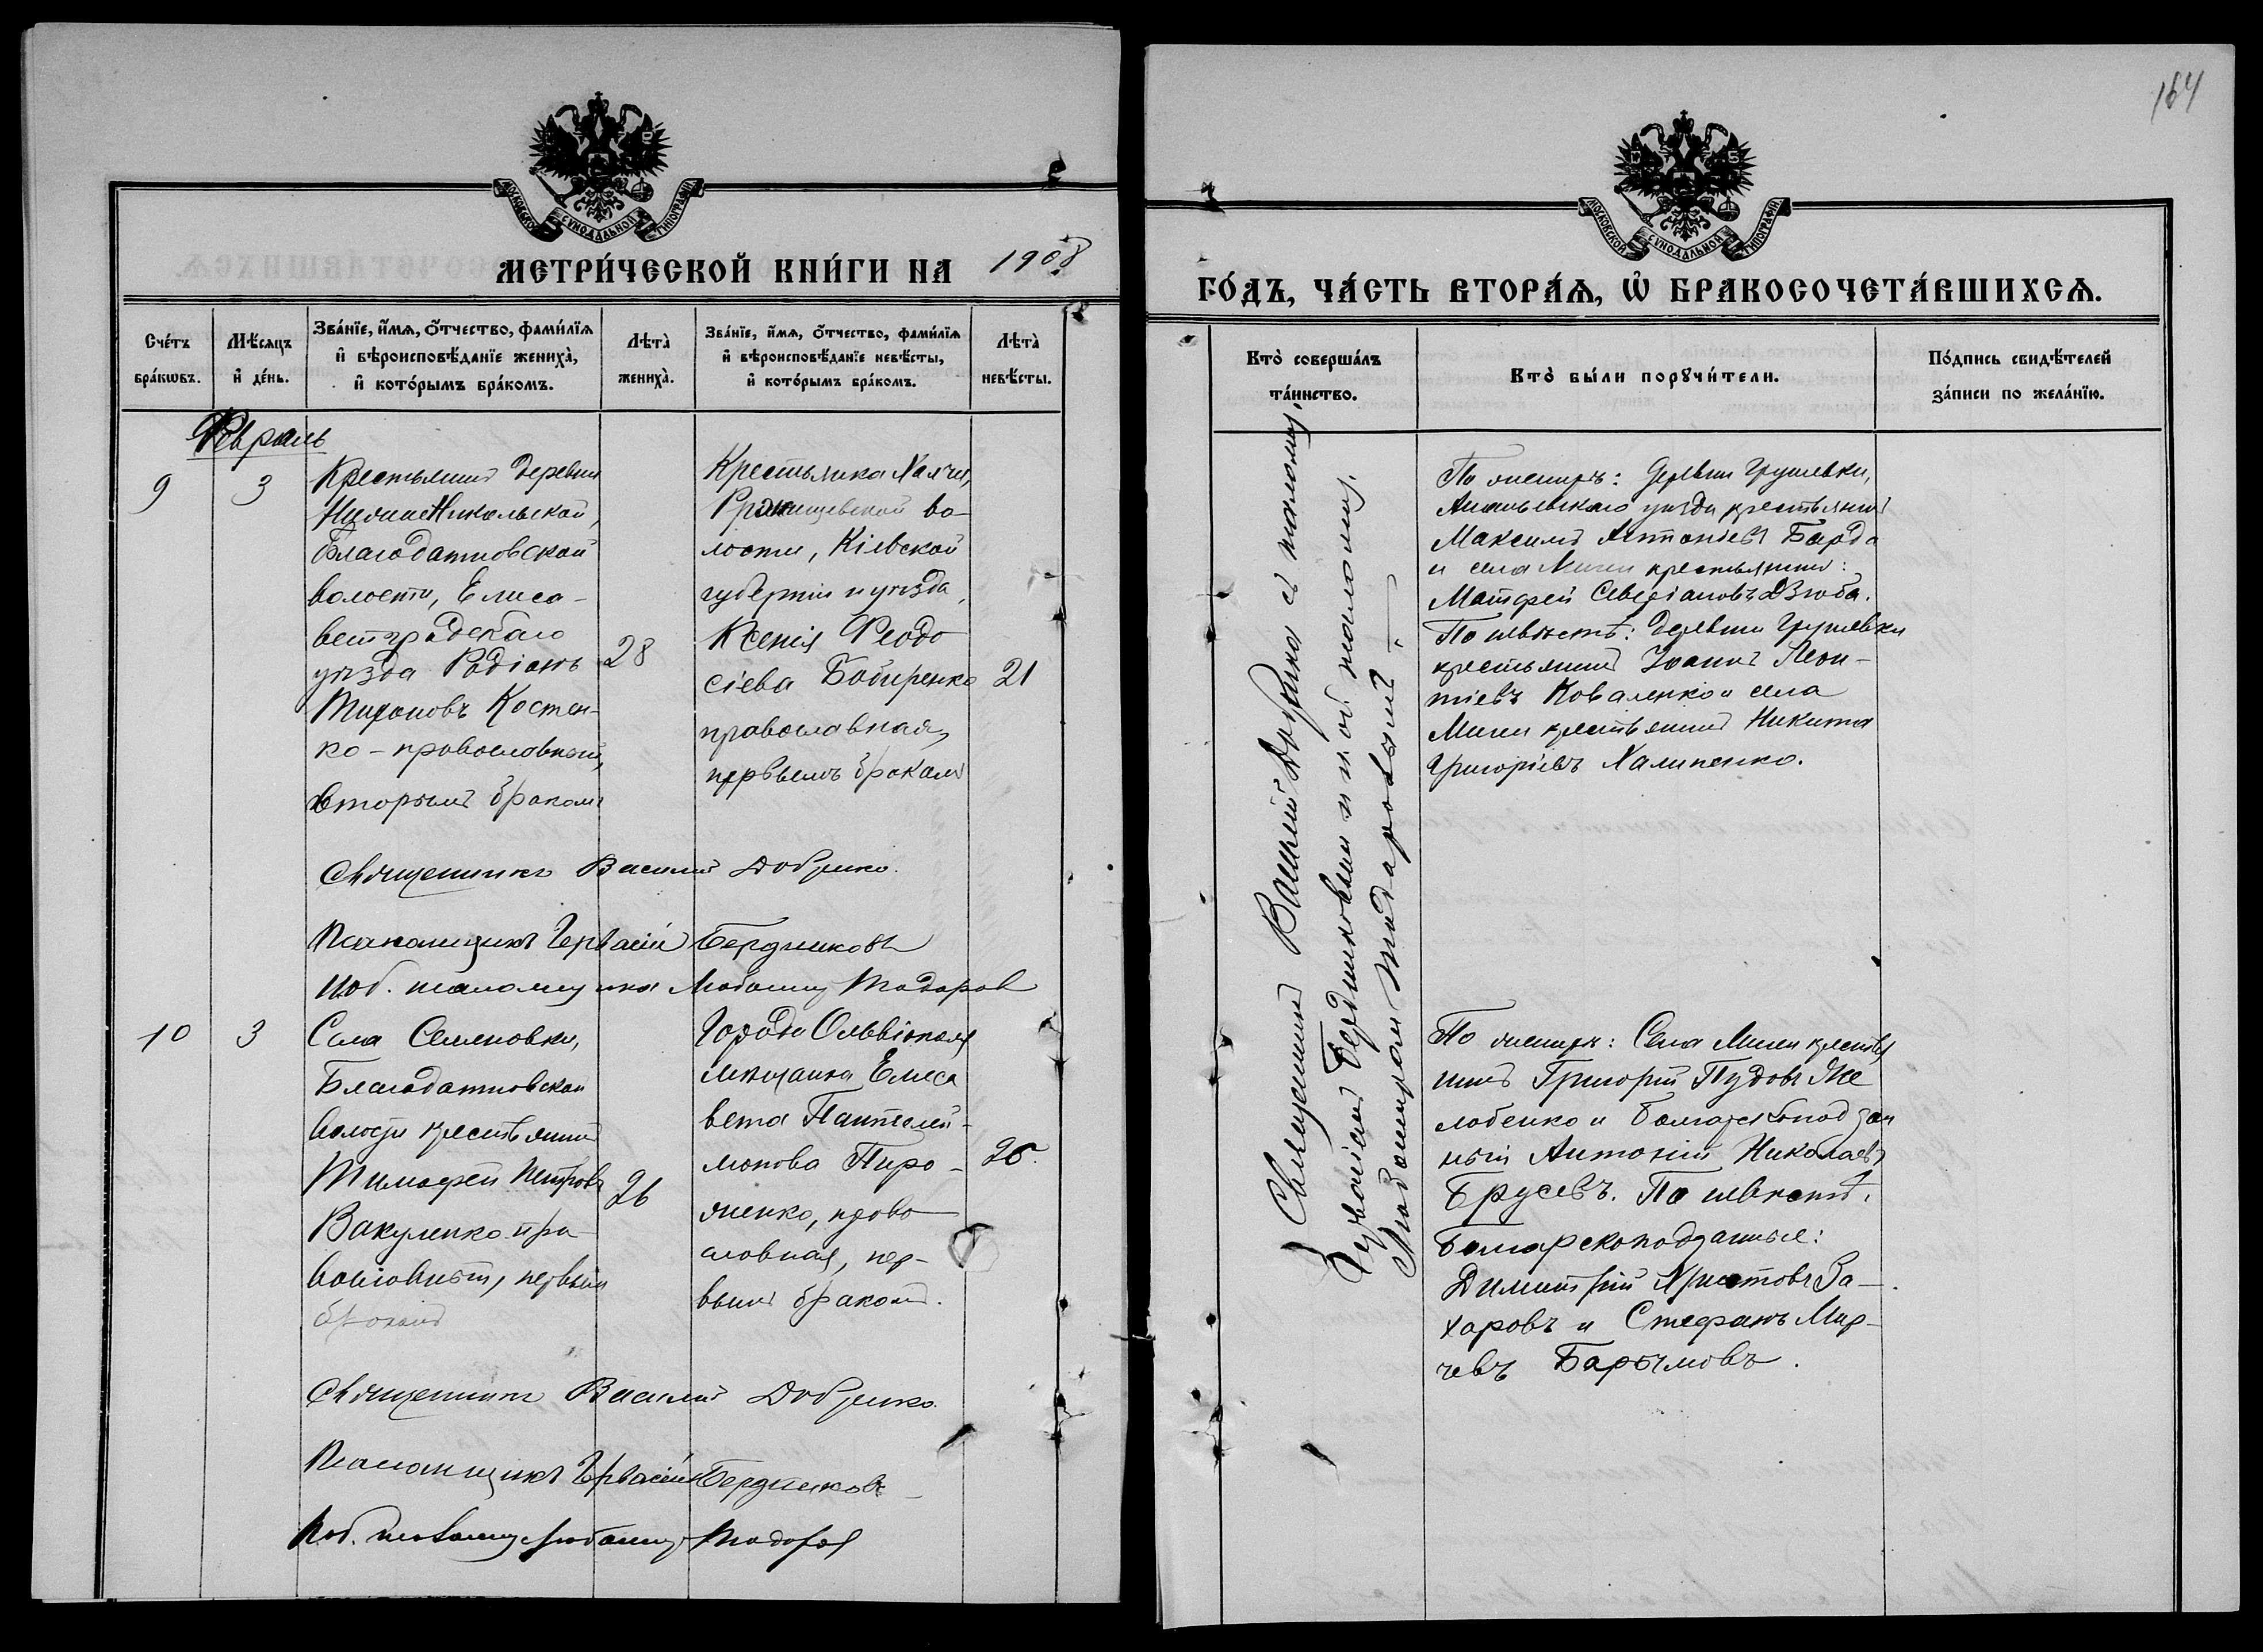 МОСКОВСКОЙ СѴНОДАЛЬНОЙ ТИПОГРАФІИ
МЕТРИ́ЧЕСКОЙ КНИ́ГИ НА 1908
Сче́тъ бра́кѡвъ.
Мѣ́сяцъ и де́нь.
Зва́нїе, и́мѧ, ѻ́тчество, фами́лїѧ
и вѣроисповѣ́данїе жениха̀,
и кото́рымъ бра́комъ.
Лѣта̀ жениха̀.
Зва́нїе, и́мѧ, ѻ́тчество, фами́лїѧ
и вѣроисповѣ́данїе невѣ́сты,
и кото́рымъ бра́комъ.
Лѣта̀ невѣ́сты.
Февраль
9
3
Крестьянинъ деревни
Никольской,
Благодатновской
волости, Елиса-
ветградскаго
уѣзда Родіонъ
Мироновъ Костен-
ко - православный,
вторымъ бракомъ
28
Крестьянка
во-
лости, Кіевской
губерніи и уѣзда,
Ксенія Феодо
сіева Бобиренко
православная,
первымъ бракомъ
21
Священникъ Василій
Псаломщикъ Гервасій Бердниковъ
Иоб. псаломщика Любомиръ Тодоров
10
3
Села Семеновки,
Благодатновской
волости крестьянинъ
Тимофей Петровъ
Вакуленко пра-
вославный, первымъ
бракомъ
26
Города Ольвіополя
мѣщанка Елиса
вета Пантелей-
монова Пиро-
женко, право
славная, пер-
вымъ бракомъ.
Священникъ Василій
Псаломщикъ Гервасій Бердниковъ
Иоб. псаломщ. Любомиръ Тодоров
164
МОСКОВСКОЙ СѴНОДАЛЬНОЙ ТИПОГРАФІИ
ГО́ДЪ, ЧА́СТЬ ВТОРА́Ѧ, Ѡ҆ БРАКОСОЧЕТА́ВШИХСѦ.
Кто̀ соверша́лъ
та́инство.
Кто̀ бы́ли порꙋчи́тели.
По́дпись свидѣ́телей
за́писи по жела́нїю.
Священникъ Василій съ псаломщ.
Гервасіемъ Бердниковымъ и псаломщ.
Любомиромъ Тодоровымъ
По женихѣ: деревни Грушевки,
Ананьевскаго уѣзда крестьянинъ
Максимъ Антоніевъ Барда
и села Мигеи крестьянинъ:
Матфей Северіановъ Дзюба.
По невѣстѣ: деревни Грушевки
крестьянинъ Іоаннъ Леон-
тіевъ Коваленко и села
Мигеи крестьянинъ Никита
Григоріевъ Халипенко.
По женихѣ: Села Мигеи крестья
нинъ Григорій Пудовъ Же
лобенко и Болгарскоподдан
ный Антоній Николаевъ
Брусевъ. По невѣстѣ:
Болгарскоподданные:
Димитрій Христовъ За-
харовъ и Стефанъ Мир-
чевъ Барымовъ.